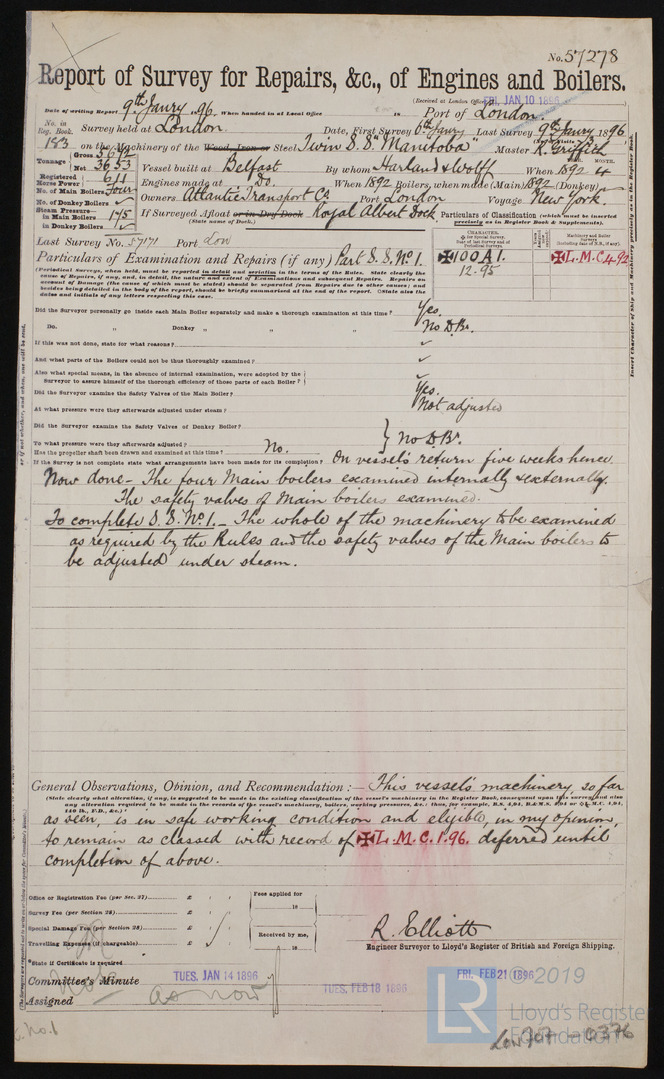 No. 57278
Report of Survey for Repairs, &c., of Engines and Boilers.
(Received at London Office FRI. JAN 10 1896
Date of writing Report 9th Janry 1896. When handed in at Local Office 18 Port of London.
No. in Reg. Book. Survey held at London. Date, First Survey 6th Janry Last Survey 9th Janry 1896
183 on the Machinery of the Wood, Iron or Steel Twin S.S. "Manitoba" Master R. Griffith
Tonnage Gross 5672
Net 3653 Vessel built at Belfast By whom Harland & Wolff When 1892 4
Registered Horse Power 611 Engines made at Do. When 1892 Boilers, when made (Main) 1892 (Donkey)
No. of Main Boilers Four Owners Atlantic Transport Co. Port London Voyage New York.
No. of Donkey Boilers ✓
Steam Pressure— in Main Boilers 175 If Surveyed Afloat or in Dry Dock Royal Albert Dock
(State name of Dock.)
in Donkey Boilers
Particulars of Classification (which must be inserted precisely as in Register Book & Supplements).
Last Survey No. 57171 Port Lon
CHARACTER.
✠ for Special Survey.
Machinery and Boiler Surveys
Particulars of Examination and Repairs (if any) Part S.S. No 1.
✠100A1. ✠L.M.C.4.92
12.95
(Periodical Surveys, when held, must be reported in detail and seriatim in the terms of the Rules. State clearly the
cause of Repairs, if any, and, in detail, the nature and extent of Examinations and subsequent Repairs. Repairs on
account of Damage (the cause of which must be stated) should be separated from Repairs due to other causes; and
besides being detailed in the body of the report, should be briefly summarised at the end of the report. State also the
dates and initials of any letters respecting this case.
Did the Surveyor personally go inside each Main Boiler separately and make a thorough examination at this time? Yes.
Do. " Donkey " " " " No D.Br.
If this was not done, state for what reasons? ✓
And what parts of the Boilers could not be thus thoroughly examined? ✓
Also what special means, in the absence of internal examination, were adopted by the
Surveyor to assure himself of the thorough efficiency of those parts of each Boiler? ✓
Did the Surveyor examine the Safety Valves of the Main Boiler? Yes.
At what pressure were they afterwards adjusted under steam? Not adjusted
Did the Surveyor examine the Safety Valves of Donkey Boiler?
To what pressure were they afterwards adjusted? } No D.Br.
Has the propeller shaft been drawn and examined at this time? No.
If the Survey is not complete state what arrangements have been made for its completion? On vessel's return five weeks hence.
Now done – The four Main boilers examined internally & externally.
The safety valves of Main boilers examined.
To complete S.S. No 1. – The whole of the machinery to be examined
as required by the Rules and the safety valves of the Main boilers to
be adjusted under steam.
General Observations, Opinion, and Recommendation :— This vessel's machinery, so far
(State clearly what alteration, if any, is suggested to be made in the existing classification of the vessel's machinery in the Register Book, consequent upon this survey, and also
any alteration required to be made in the records of the vessel's machinery, boilers, working pressure, &c.; thus, for example, B.S. 4,94, B.&M.S. 4,94 or ✠L.M.C. 4,94,
140 lb., F.D., &c.)
as seen, is in safe working condition and eligible, in my opinion,
to remain as classed with record of ✠L.M.C. 1.96. deferred until
completion of above.
Office or Registration Fee (per Sec. 27) £
Survey Fee (per Section 28) £
Special Damage Fee (per Section 28) £
Travelling Expenses (if chargeable) £
Fees applied for
18
Received by me,
18
R. Elliott
Engineer Surveyor to Lloyd's Register of British and Foreign Shipping.
*State if Certificate is required
Committee's Minute TUES. JAN 14 1896 TUES. FEB 18 1896 FRI. FEB 21 1896
Assigned as now
LR
© 2019
Lloyd's Register
Foundation
Lon 707 – 0376